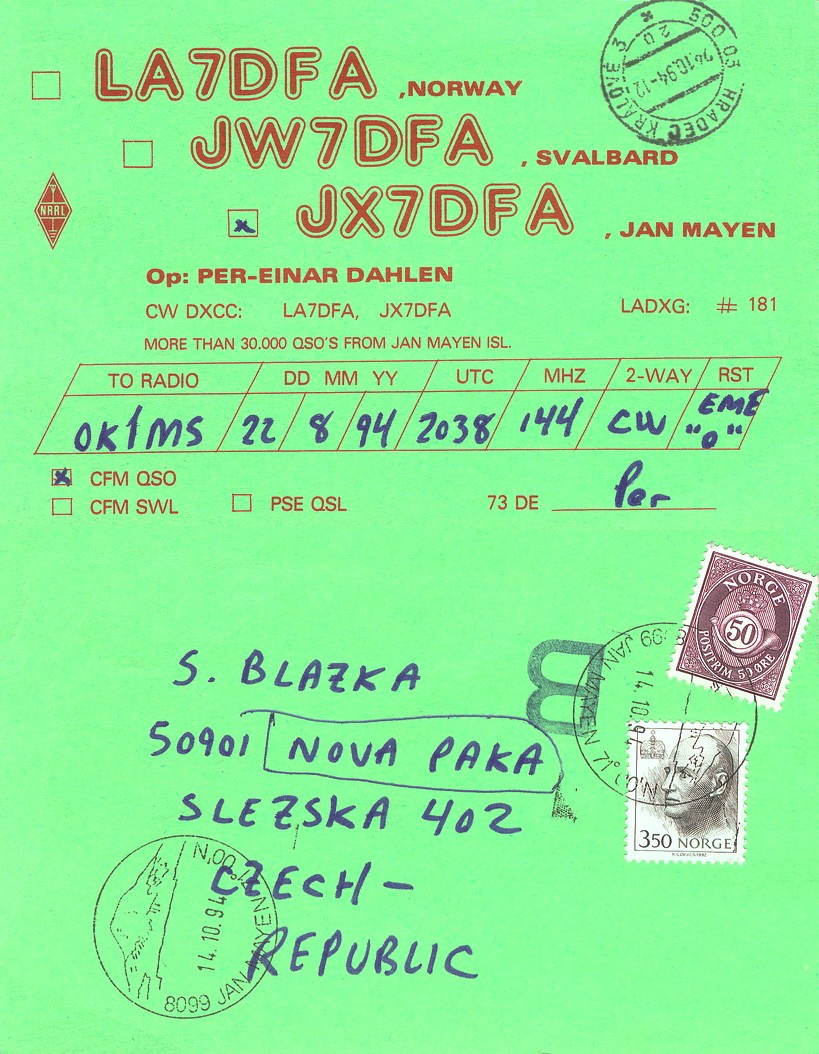 LA7DFA , NORWAY
500 03 HRADEC KRÁLOVÉ 3
24.10.94-12
JW7DFA , SVALBARD
NRRL
x JX7DFA , JAN MAYEN
Op: PER-EINAR DAHLEN
CW DXCC: LA7DFA, JX7DFA LADXG: # 181
MORE THAN 30.000 QSO'S FROM JAN MAYEN ISL.
TO RADIO DD MM YY UTC MHZ 2-WAY RST
OK1MS 22 8 94 2038 144 CW EME "O"
x CFM QSO
CFM SWL PSE QSL 73 DE Per
NORGE
50
POSTFRIM. 50 ØRE
8099 JAN MAYEN 71°00'N
14.10.94
B
S. BLAZKA
50901 NOVA PAKA
SLEZSKA 402
350 NORGE
CZECH-
REPUBLIC
8099 JAN MAYEN 71°00'N
14.10.94